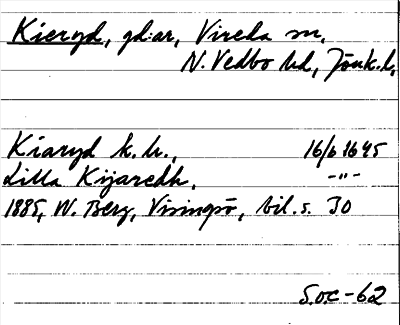 Kieryd, gd:ar, Vireda sn,
N. Vedbo hd, Jönk. l,
Kiaryd k. hr., 16/6 1645
Lilla Kijaredh, -"-
1885, W. Berg, Visingsö, bil. s. 30
S.O.C-62